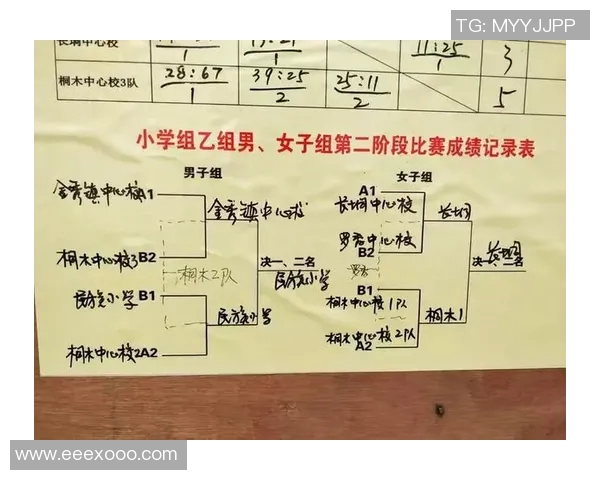 TG: MYYJJPP
长垌中心校
1
11:25
1
3
桐木中心校3队
28:67
1
39:25
2
25:11
2
5
小学组乙组男、女子组第二阶段比赛成绩记录表
男子组
女子组
金秀镇中心校A1
金秀镇中心校
桐木中心校3 B2
桐木2队
决一、二名
民族小学
民族小学 B1
民族小学
桐木中心校2A2
A1
长垌中心校
长垌
罗香中心校
B2
罗香
长垌
决一、二名
B1
桐木中心校1队
桐木1
桐木中心校2队
A2
www.eeexooo.com